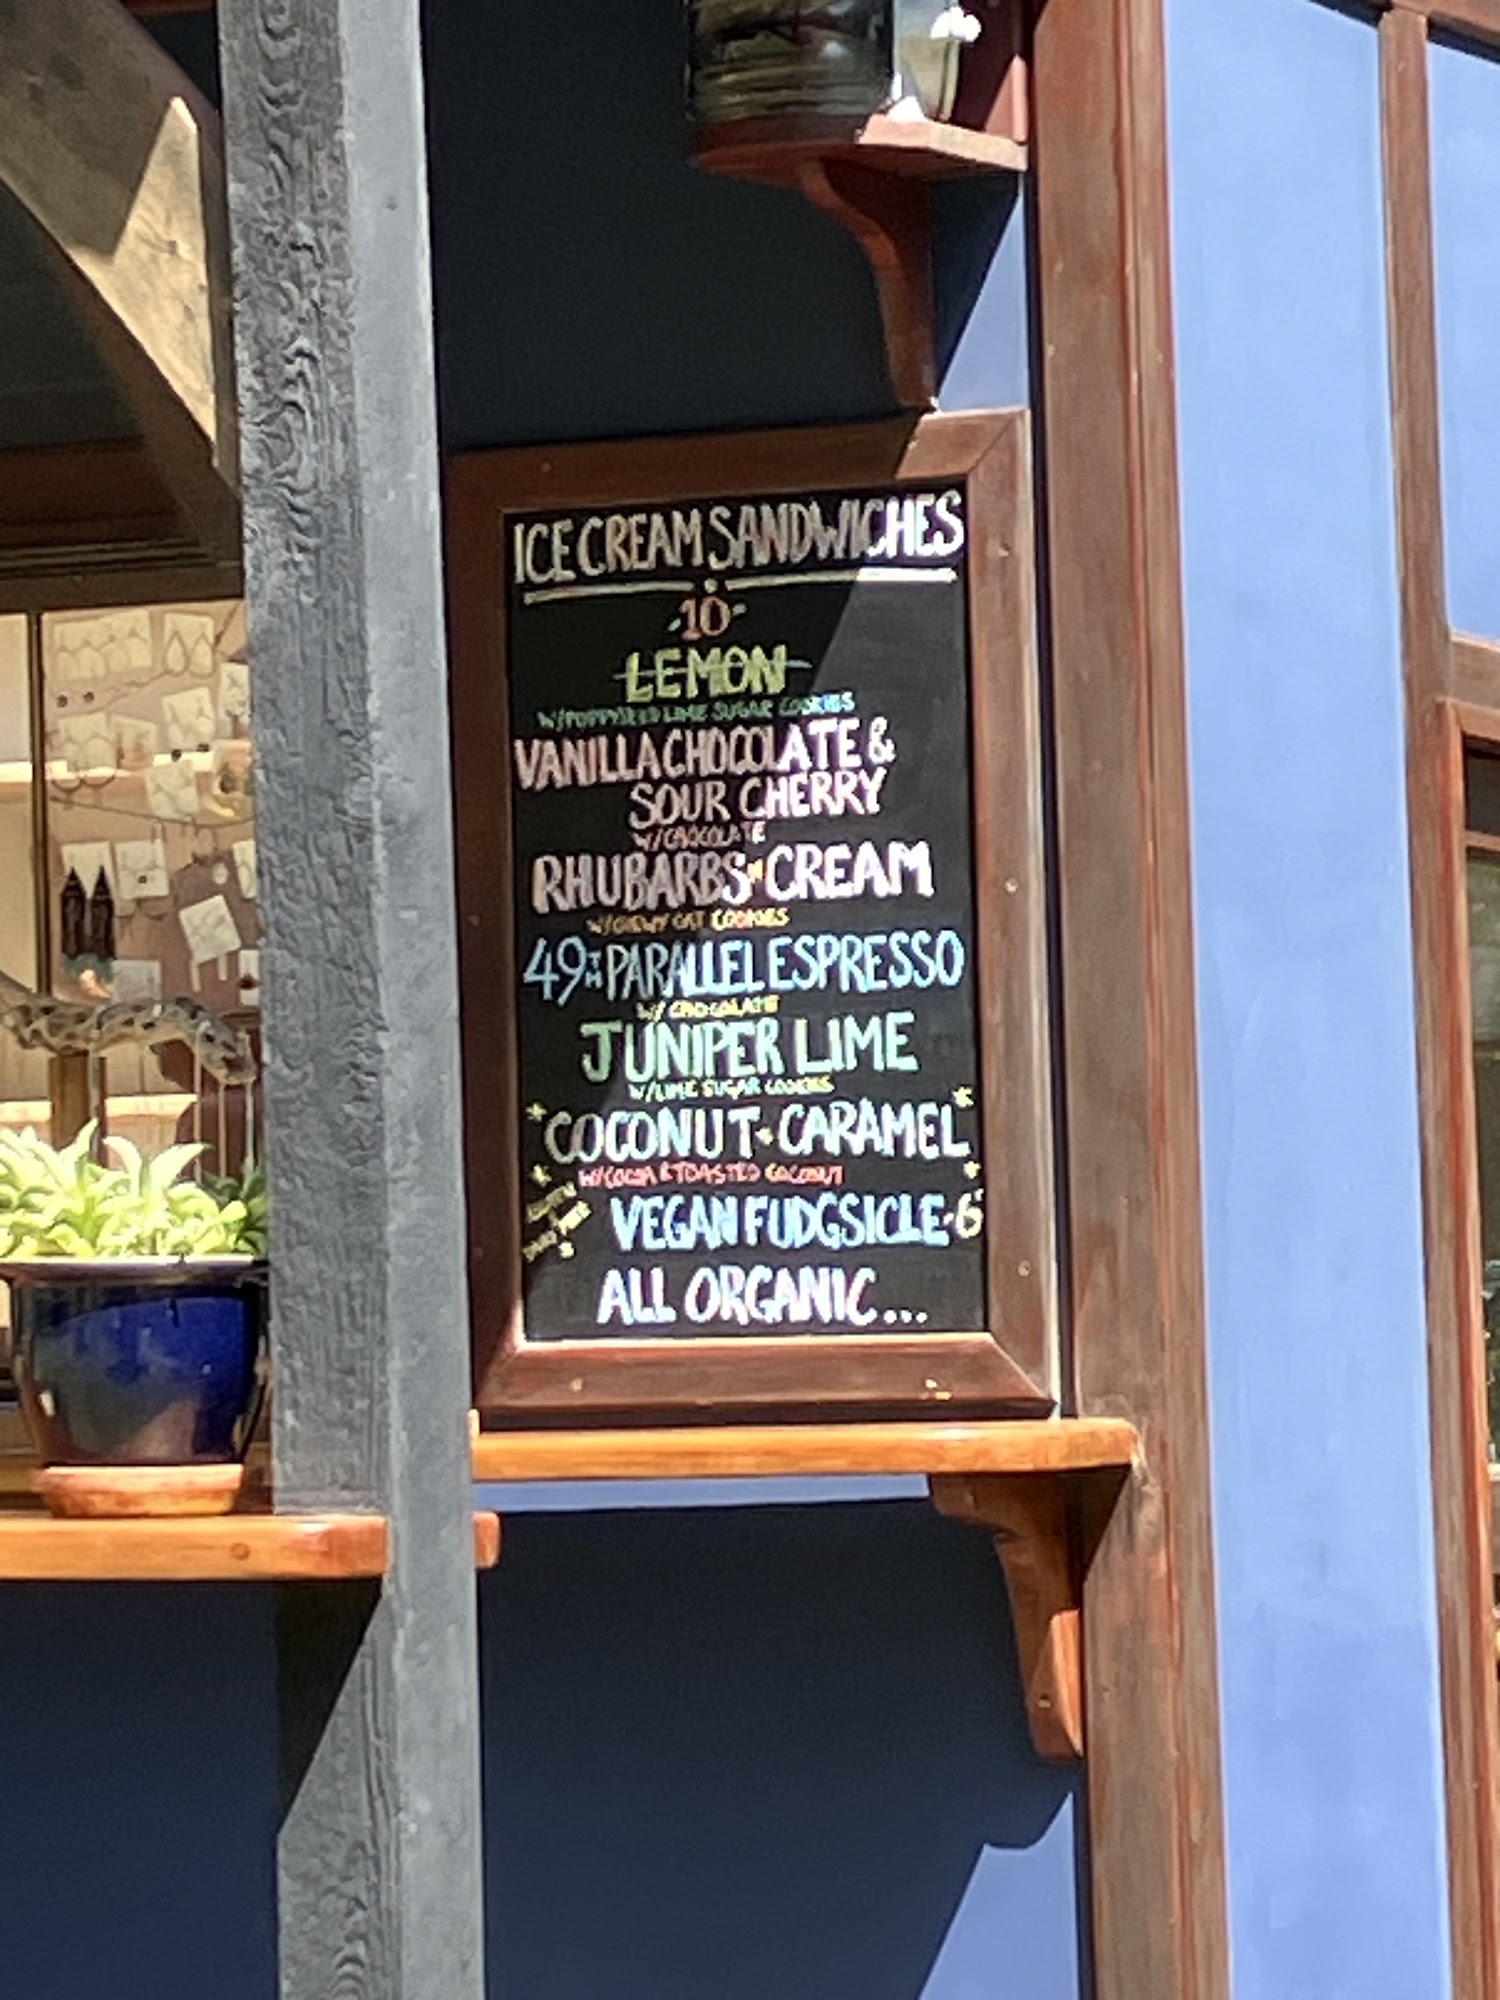 ICE CREAM SANDWICHES
·10·
LEMON
W/POPPYSEED LIME SUGAR COOKIES
VANILLA CHOCOLATE &
SOUR CHERRY
W/CHOCOLATE
RHUBARBS N CREAM
W/CHEWY OAT COOKIES
49TH PARALLEL ESPRESSO
W/ CHOCOLATE
JUNIPER LIME
W/LIME SUGAR COOKIES
COCONUT·CARAMEL
W/COCOA & TOASTED COCONUT
VEGAN FUDGSICLE·6
ALL ORGANIC...